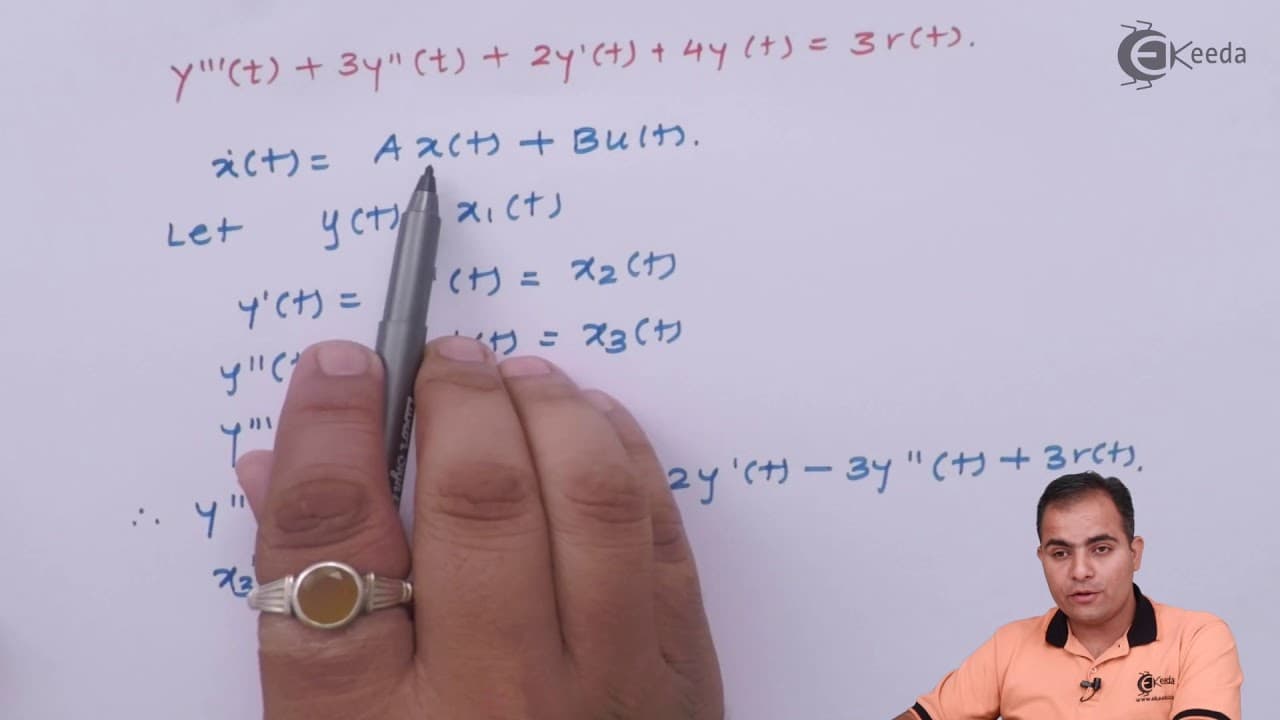 y'''(t) + 3y''(t) + 2y'(t) + 4y(t) = 3r(t).
EKeeda
ẋ(t) = A x(t) + Bu(t).
Let y(t) x₁(t)
y'(t) = (t) = x₂(t)
y''( (t) = x₃(t)
y'''
∴ y'' 2y'(t) − 3y''(t) + 3r(t).
EKeeda